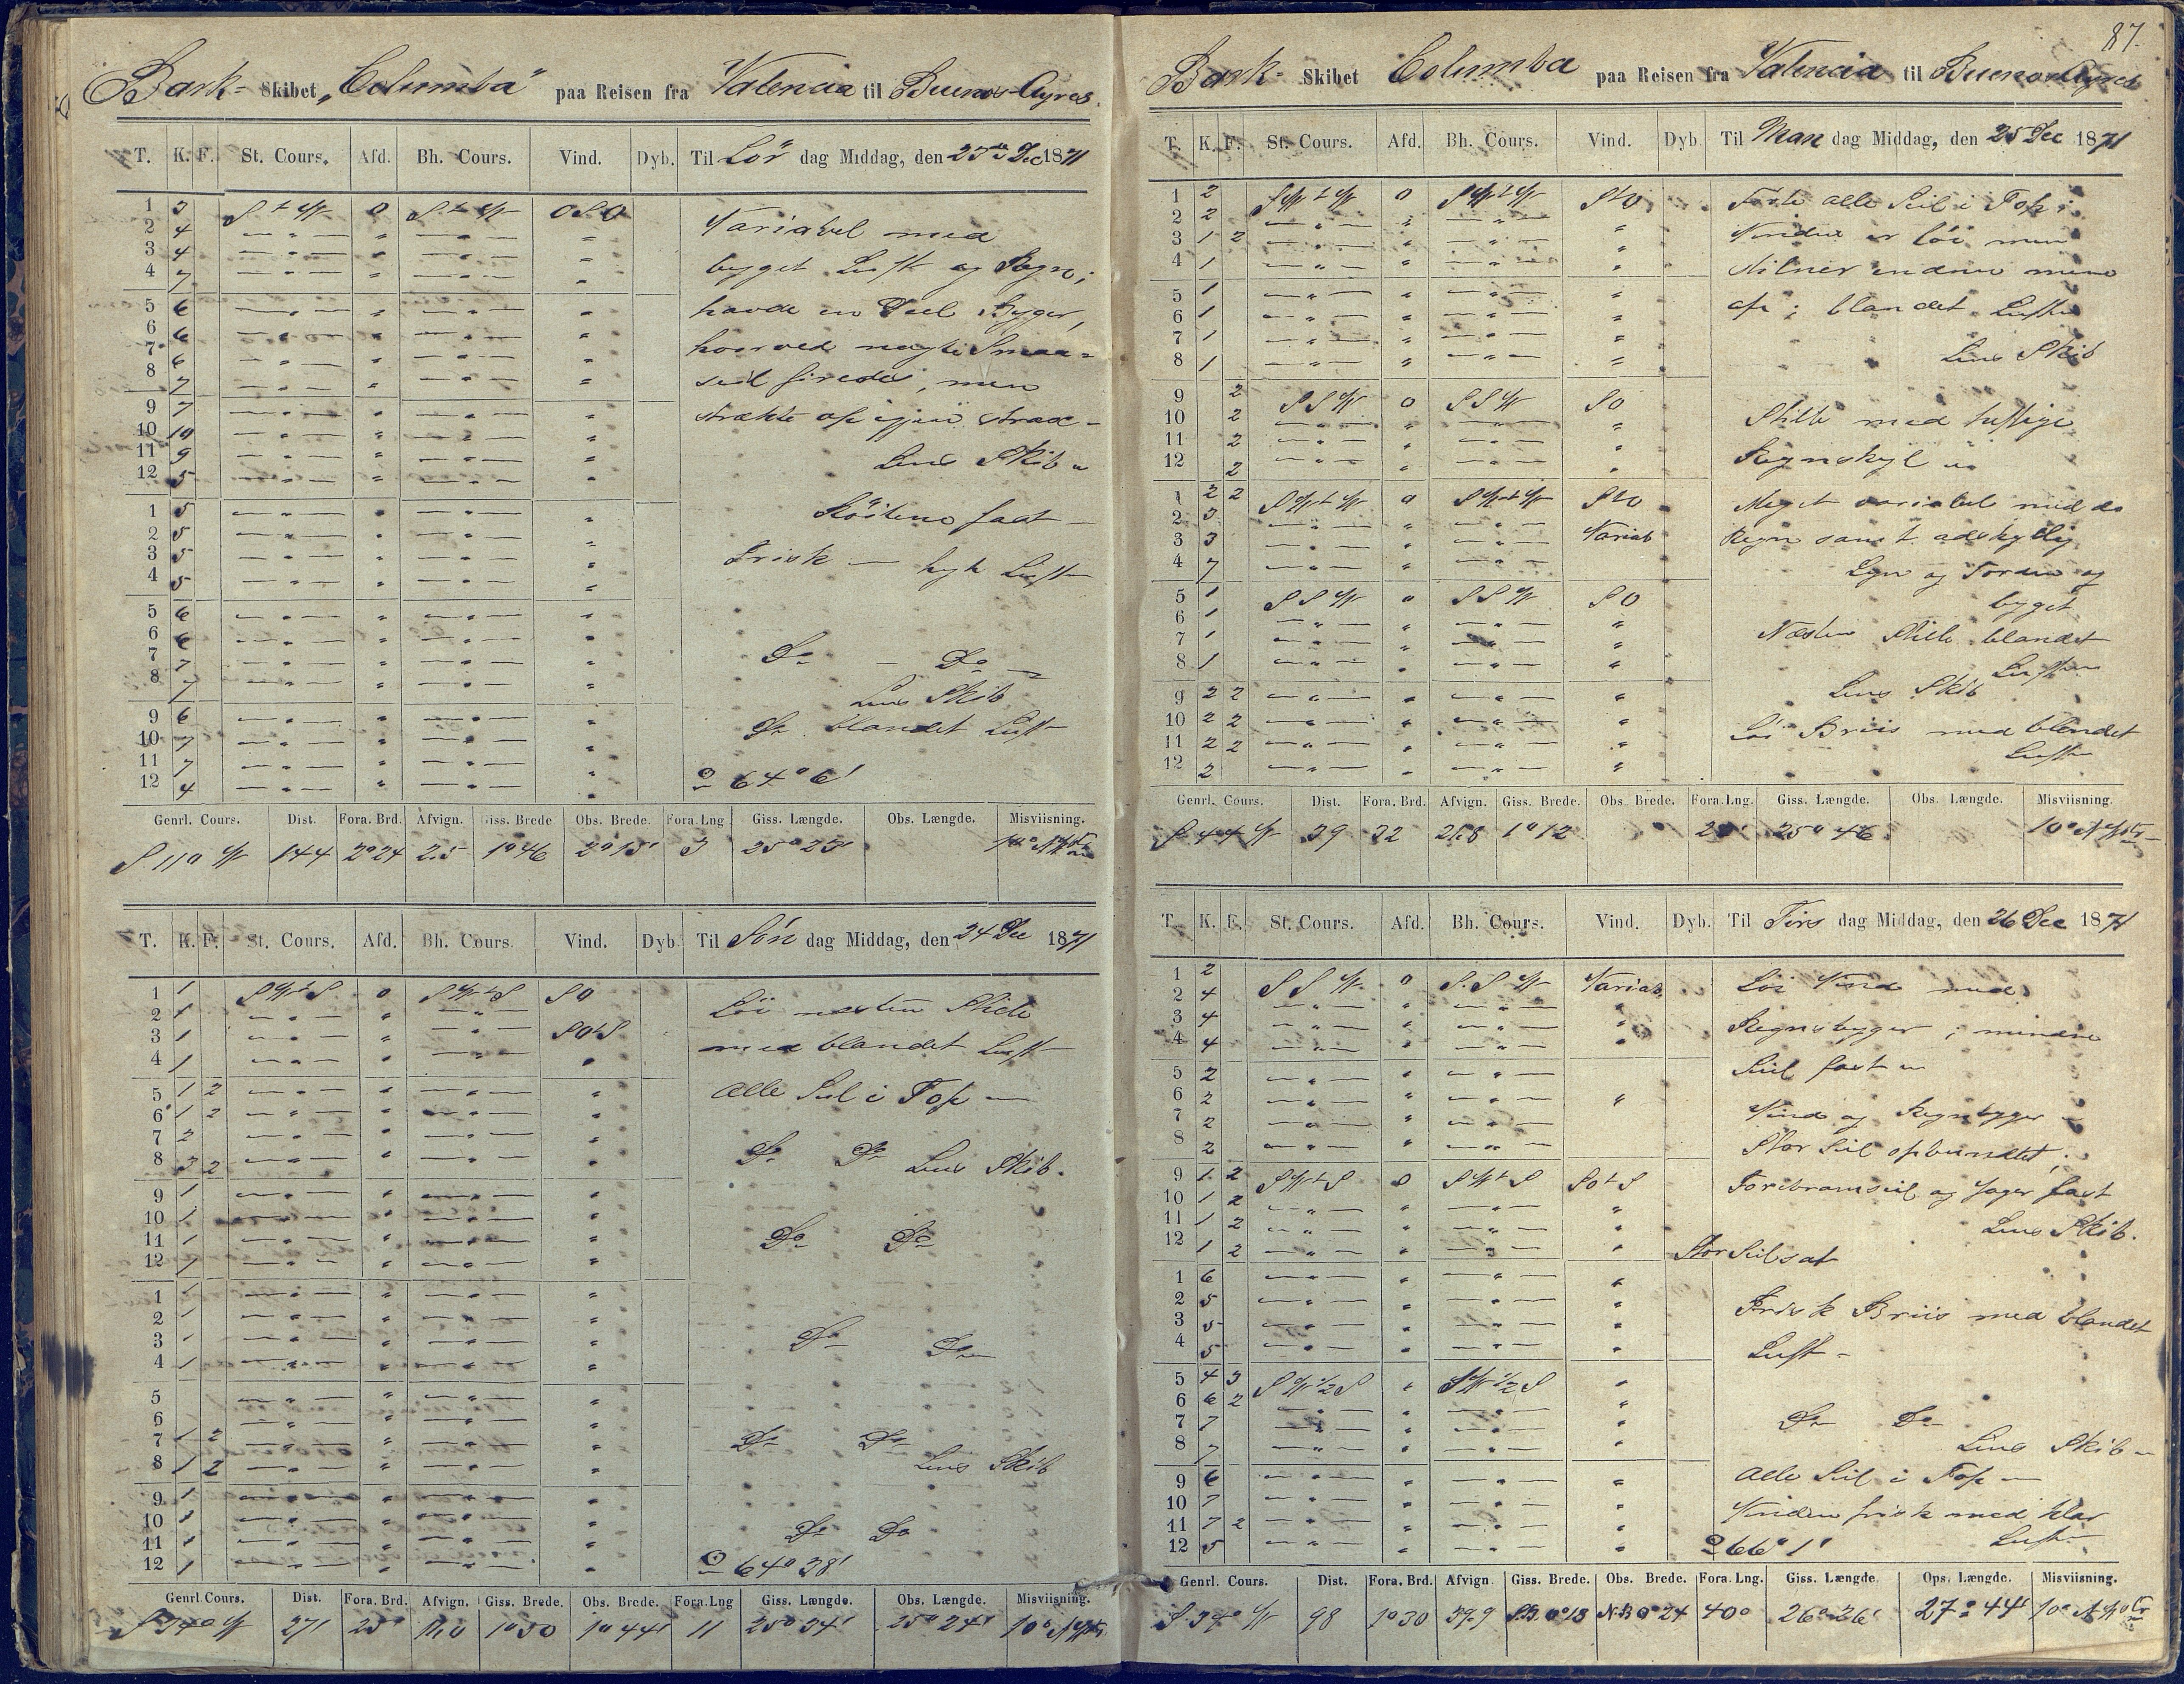 Bark- Skibet „Columba" paa Reisen fra Valencia til Buenos-Ayres.
T. K. F. St. Cours. Afd. Bh. Cours. Vind. Dyb. Til Lör dag Middag, den 23de Dec 1871
1 3 S t W 0 S t W OSO
2 4 Variabel med
3 4 bygget Luft og Regn;
4 7
5 6 havde en Deel Byger,
6 6 hvorved nogle Smaa=
7 6 seil firedes, men
8 7
9 7 strækte op igjen strax -
10 10
11 9 Lens Skib
12 5
1 5 Röilene fast -
2 5
3 5 Frisk — byk Luft
4 5
5 6
6 6
7 7 Do - Do
8 7 Lens Skib
9 6 Do blandet Luft
10 7
11 7
12 4 64° 6'
Genrl. Cours. Dist. Fora. Brd. Afvign. Giss. Brede Obs. Brede. Fora. Lng. Giss. Længde. Obs. Længde. Misviisning.
S 11° W 144 2°24 2.5 1°46 2°15' 3 25°23'
T. K. F. St. Cours. Afd. Bh. Cours. Vind. Dyb. Til Sön dag Middag, den 24 Dec 1871
1 1 SWtS 0 SWtS SO
2 1 Löi næsten Stille
3 1 SOtS
4 1 med blandet Luft
5 1 2 alle Seil i Top
6 1 2
7 2
8 3 2 Do Do Lens Skib.
9 1
10 1
11 1 Do Do
12 1
1 1
2 1
3 1 Do
4 1 Do
5
6
7 1 2 Do Do
8 1 2 Lens Skib
9 1
10 1
11 1 Do Do
12 1 64° 38'
Genrl. Cours. Dist. Fora. Brd. Afvign. Giss. Brede. Obs. Brede. Fora. Lng Giss. Længde. Obs. Længde. Misviisning.
S 34° W 27 1°50 1°44' 11 25°34' 25°24'
87.
Bark- Skibet Columba paa Reisen fra Valencia til Buenos Ayres
T. K. F. St. Cours. Afd. Bh. Cours. Vind. Dyb Til Man dag Middag, den 25 Dec 1871
1 2 SWtW 0 SWtW StO Förte alle Seil i Top;
2 2
3 1 2 Vinden er löi men
4 1 stilner endnu mere
5 1
6 1 af; blandet Luft
7 1
8 1 Lens Skib
9 2 SSW 0 SSW SO
10 2 Stille med
11 2
12 2
1 2 2 SWtW 0 SWtW StO Meget variabel med do
2 3
3 3 Variab Regn samt
4 7 Lyn og Torden og
5 1 SSW SSW SO bygget
6 1
7 1 Næsten Stille blandet
8 1 Luft
9 2 2 Lens Skib
10 2 2 Löi Briis med blandet
11 2 2 Luft
12 2
Genrl. Cours. Dist. Fora. Brd. Afvign. Giss. Brede. Obs. Brede. Fora. Lng. Giss. Længde. Obs. Længde. Misviisning.
S 44 W 39 32 26.8 1°12 25°46
T. K. F. St. Cours. Afd. Bh. Cours. Vind. Dyb. Til Tirs dag Middag, den 26 Dec 1871
1 2 SSW 0 SSW Variab. Löi Vind med
2 4
3 4 Regnbyger; mindre
4 4
5 2 Seil fast
6 2
7 2 Vind og Regnbyger
8 2 Stor Seil opbundtet;
9 1 2 SWtS 0 SWtS SOtS Forebramseil og Jager fast
10 1 2
11 1 2 Lens Skib.
12 1 2 Stor Seil sat
1 6
2 5 Frisk Briis med blandet
3 5
4 5 Luft -
5 4 3 SW½S SW½S
6 6 2
7 7 Do Do
8 7 Lens Skib
9 6 alle Seil i Top
10 7 Vinden frisk med klar
11 7 2 Luft
12 5 66° 1'
Genrl. Cours. Dist. Fora. Brd. Afvign. Giss. Brede. Obs. Brede. Fora. Lng. Giss. Længde Ops. Længde. Misviisning.
98 1°30 39.9 SB. 0°18 NB 0°24 40° 26°26' 27°44'